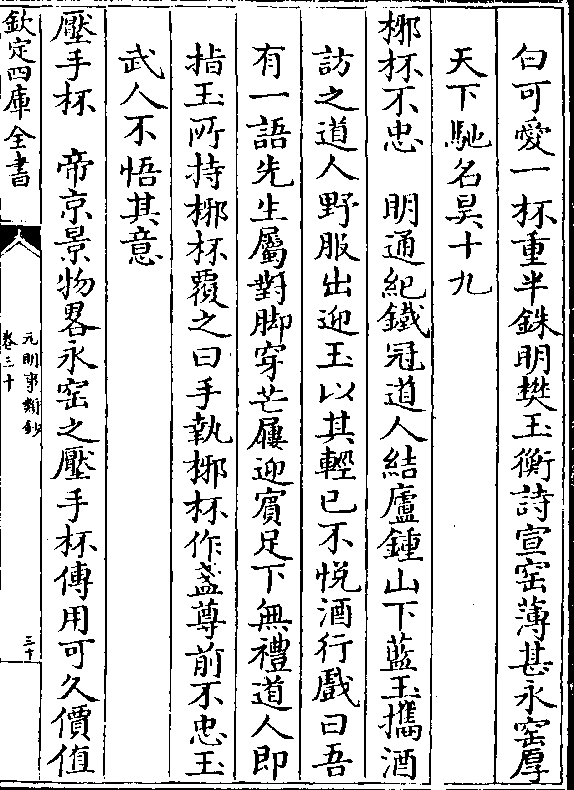 白可愛一杯重半銖明樊玉衡詩宣窑薄甚永窑厚
天下馳名昊十九
梛杯不忠　明通紀鐵冠道人結廬鍾山下藍玉攜酒
訪之道人野服出迎玉以其輕已不悅酒行戲曰吾
有一語先生屬對脚穿芒屨迎賓足下無禮道人即
指玉所持梛杯覆之曰手執梛杯作盞尊前不忠玉
武人不悟其意
壓手杯　帝京景物畧永窑之壓手杯傳用可久價值
欽定四庫全書
元明事類鈔
卷三十
三十